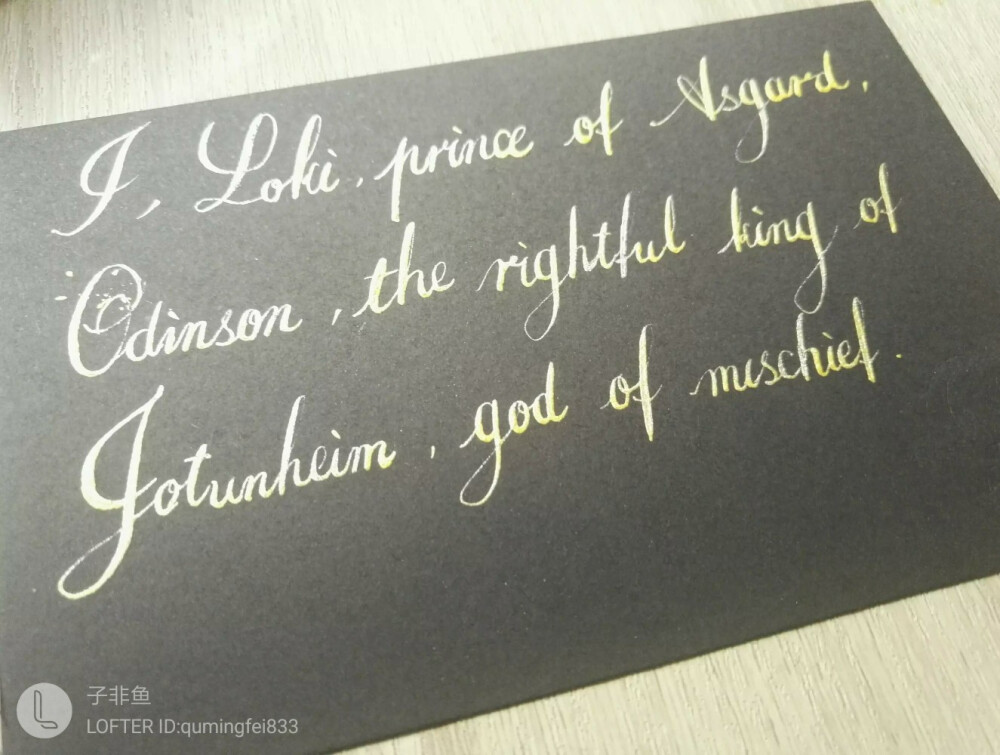 I, Loki, prince of Asgard,
Odinson, the rightful king of
Jotunheim, god of mischief.
子非鱼
LOFTER ID:qumingfei833